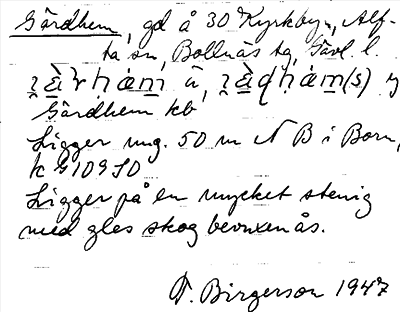 Gårdhem, gd å 30 Kyrkbyn, Alf-
ta sn, Bollnäs tg, Gävl. l.
Gårdhem kb
Ligger ung. 50 m N B i Born,
k G 109 SO
Ligger på en mycket stenig
med gles skog bevuxen ås.
P. Birgerson 1947